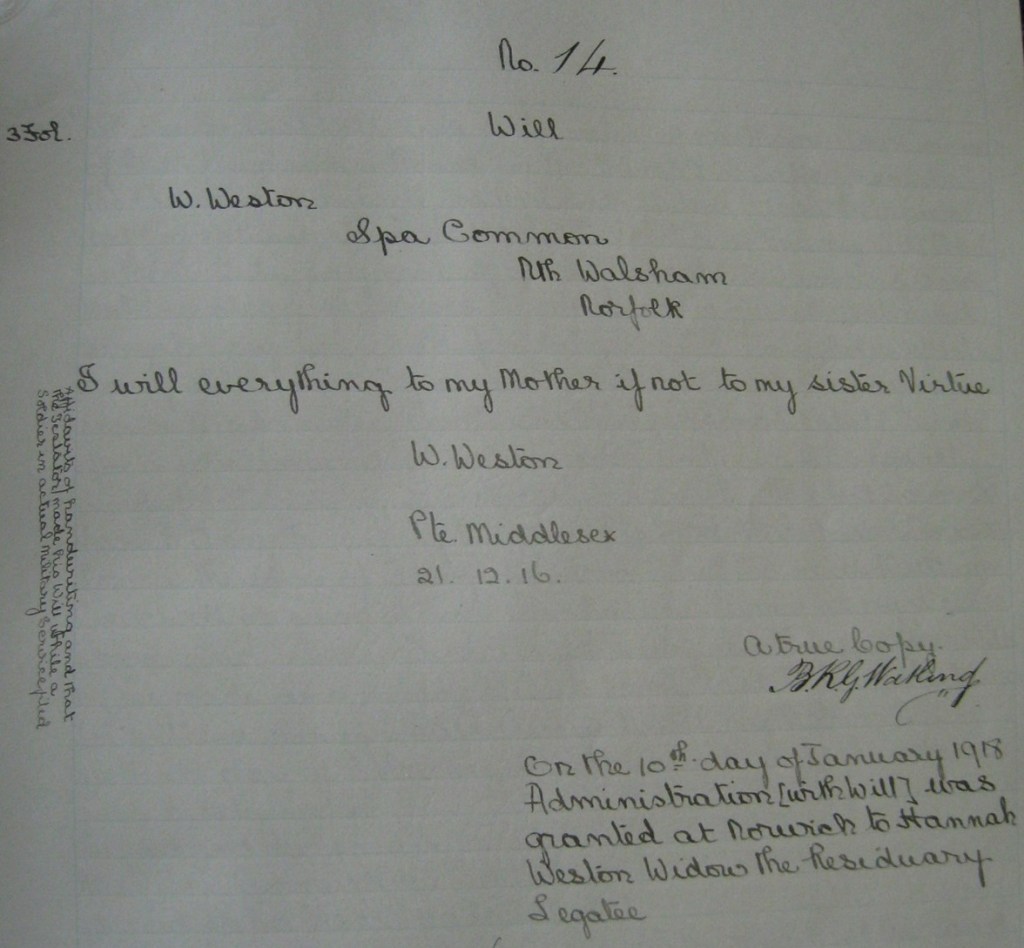 No. 14.
3 Fol.
Will
W. Weston
Spa Common
Nth Walsham
Norfolk
I will everything to my Mother if not to my sister Virtue
W. Weston
Pte. Middlesex
21. 12. 16.
Affidavits of handwriting and that
the Testator made his Will while a
Soldier in actual Military Service filed
A true Copy.
On the 10th day of January 1918
Administration [with Will] was
granted at Norwich to Hannah
Weston Widow the Residuary
Legatee